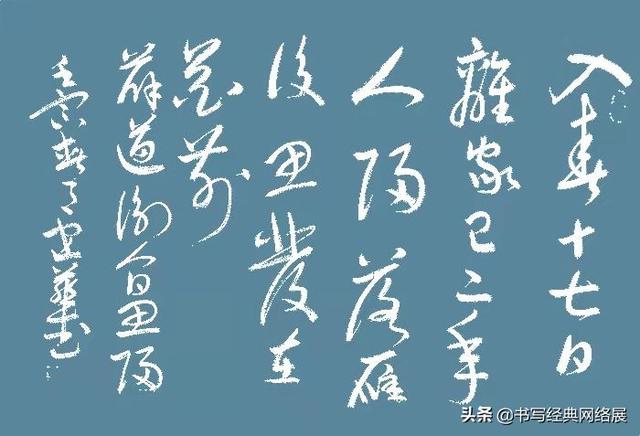 入春十七日
離家已二年
人歸落雁
後思發在
花前
薛道衡人日思歸
壬寅春
头条 @书写经典网络展